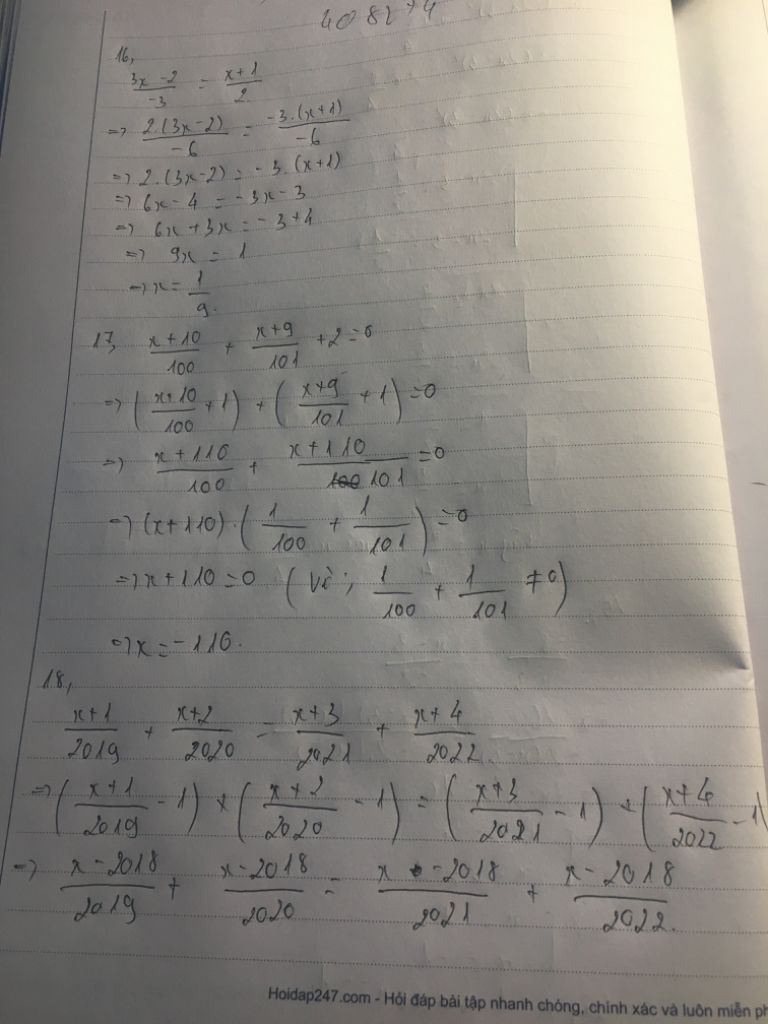 408274
16,
3x-2/-3 = x+1/2
=> 2.(3x-2)/-6 = -3.(x+1)/-6
=> 2.(3x-2) = -3.(x+1)
=> 6x-4 = -3x-3
=> 6x+3x = -3+4
=> 9x = 1
=> x = 1/9.
17, x+10/100 + x+9/101 +2=0
=> (x+10/100 +1) + (x+9/101 +1) =0
=> x+110/100 + x+110/101 =0
=> (x+110).(1/100 + 1/101) =0
=> x+110=0 (Vì; 1/100 + 1/101 ≠0)
=> x=-110.
18,
x+1/2019 + x+2/2020 = x+3/2021 + x+4/2022
=> (x+1/2019 -1) + (x+2/2020 -1) = (x+3/2021 -1) + (x+4/2022 -1)
=> x-2018/2019 + x-2018/2020 = x-2018/2021 + x-2018/2022.
Hoidap247.com - Hỏi đáp bài tập nhanh chóng, chính xác và luôn miễn ph